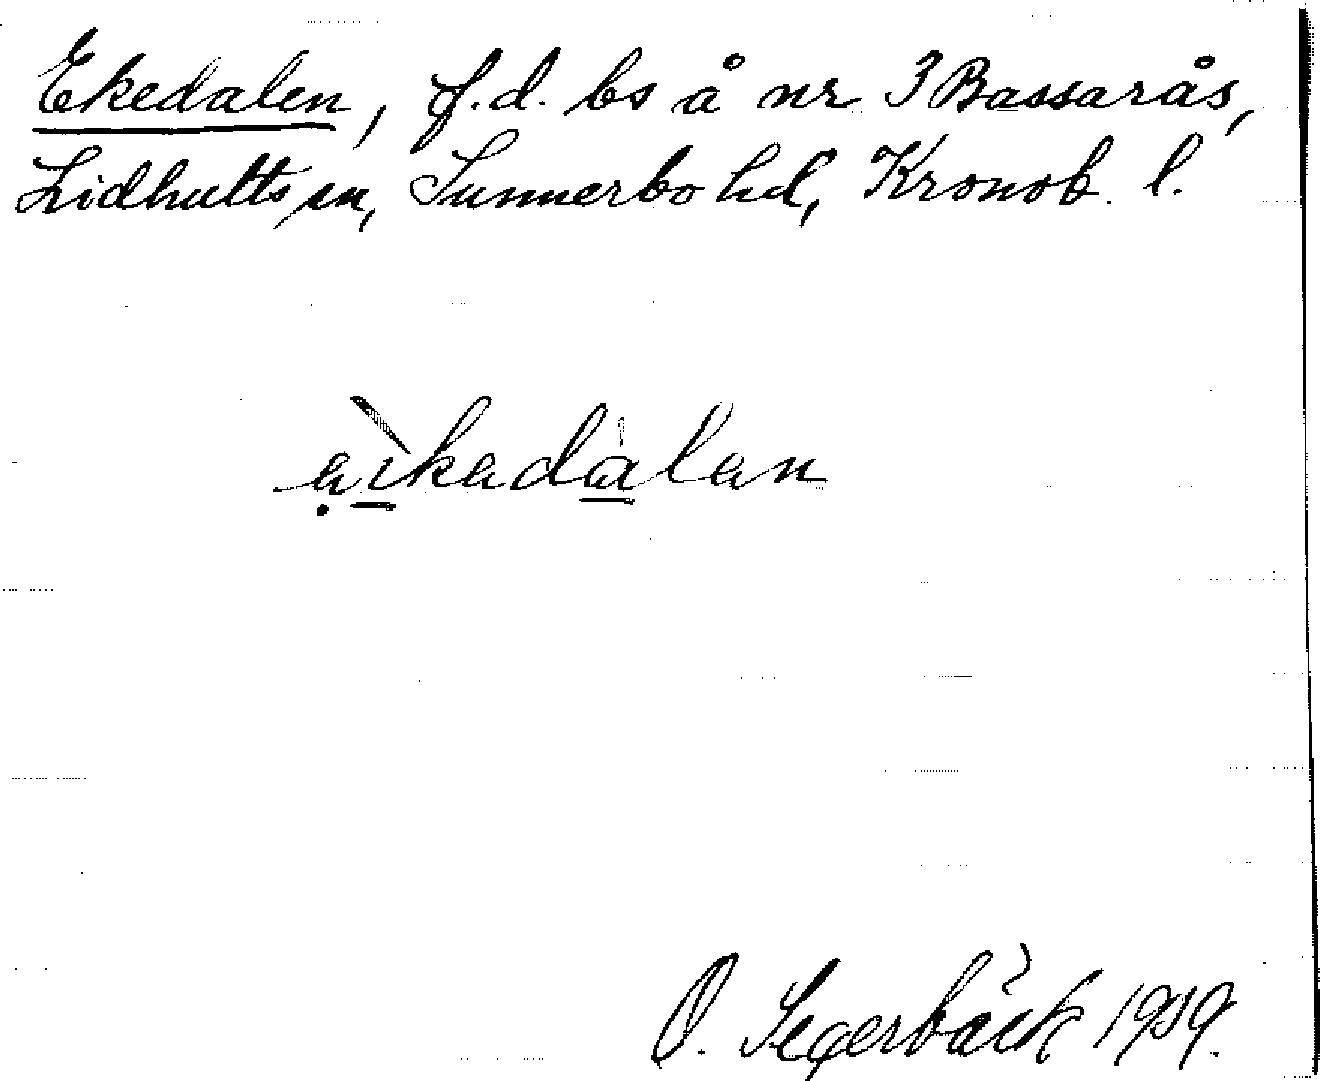 Ekedalen, f.d. bs å nr 3 Bassarås,
Lidhults sn, Sunnerbo hd, Kronob. l.
ạìkadàlan
O. Segerbäck 1919.